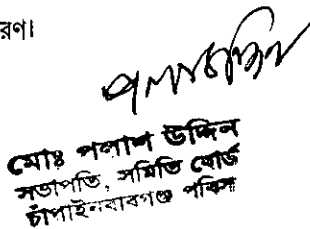 রণ।
পলাশ উদ্দিন
মোঃ পলাশ উদ্দিন
সভাপতি, সমিতি বোর্ড
চাঁপাইনবাবগঞ্জ পবিস